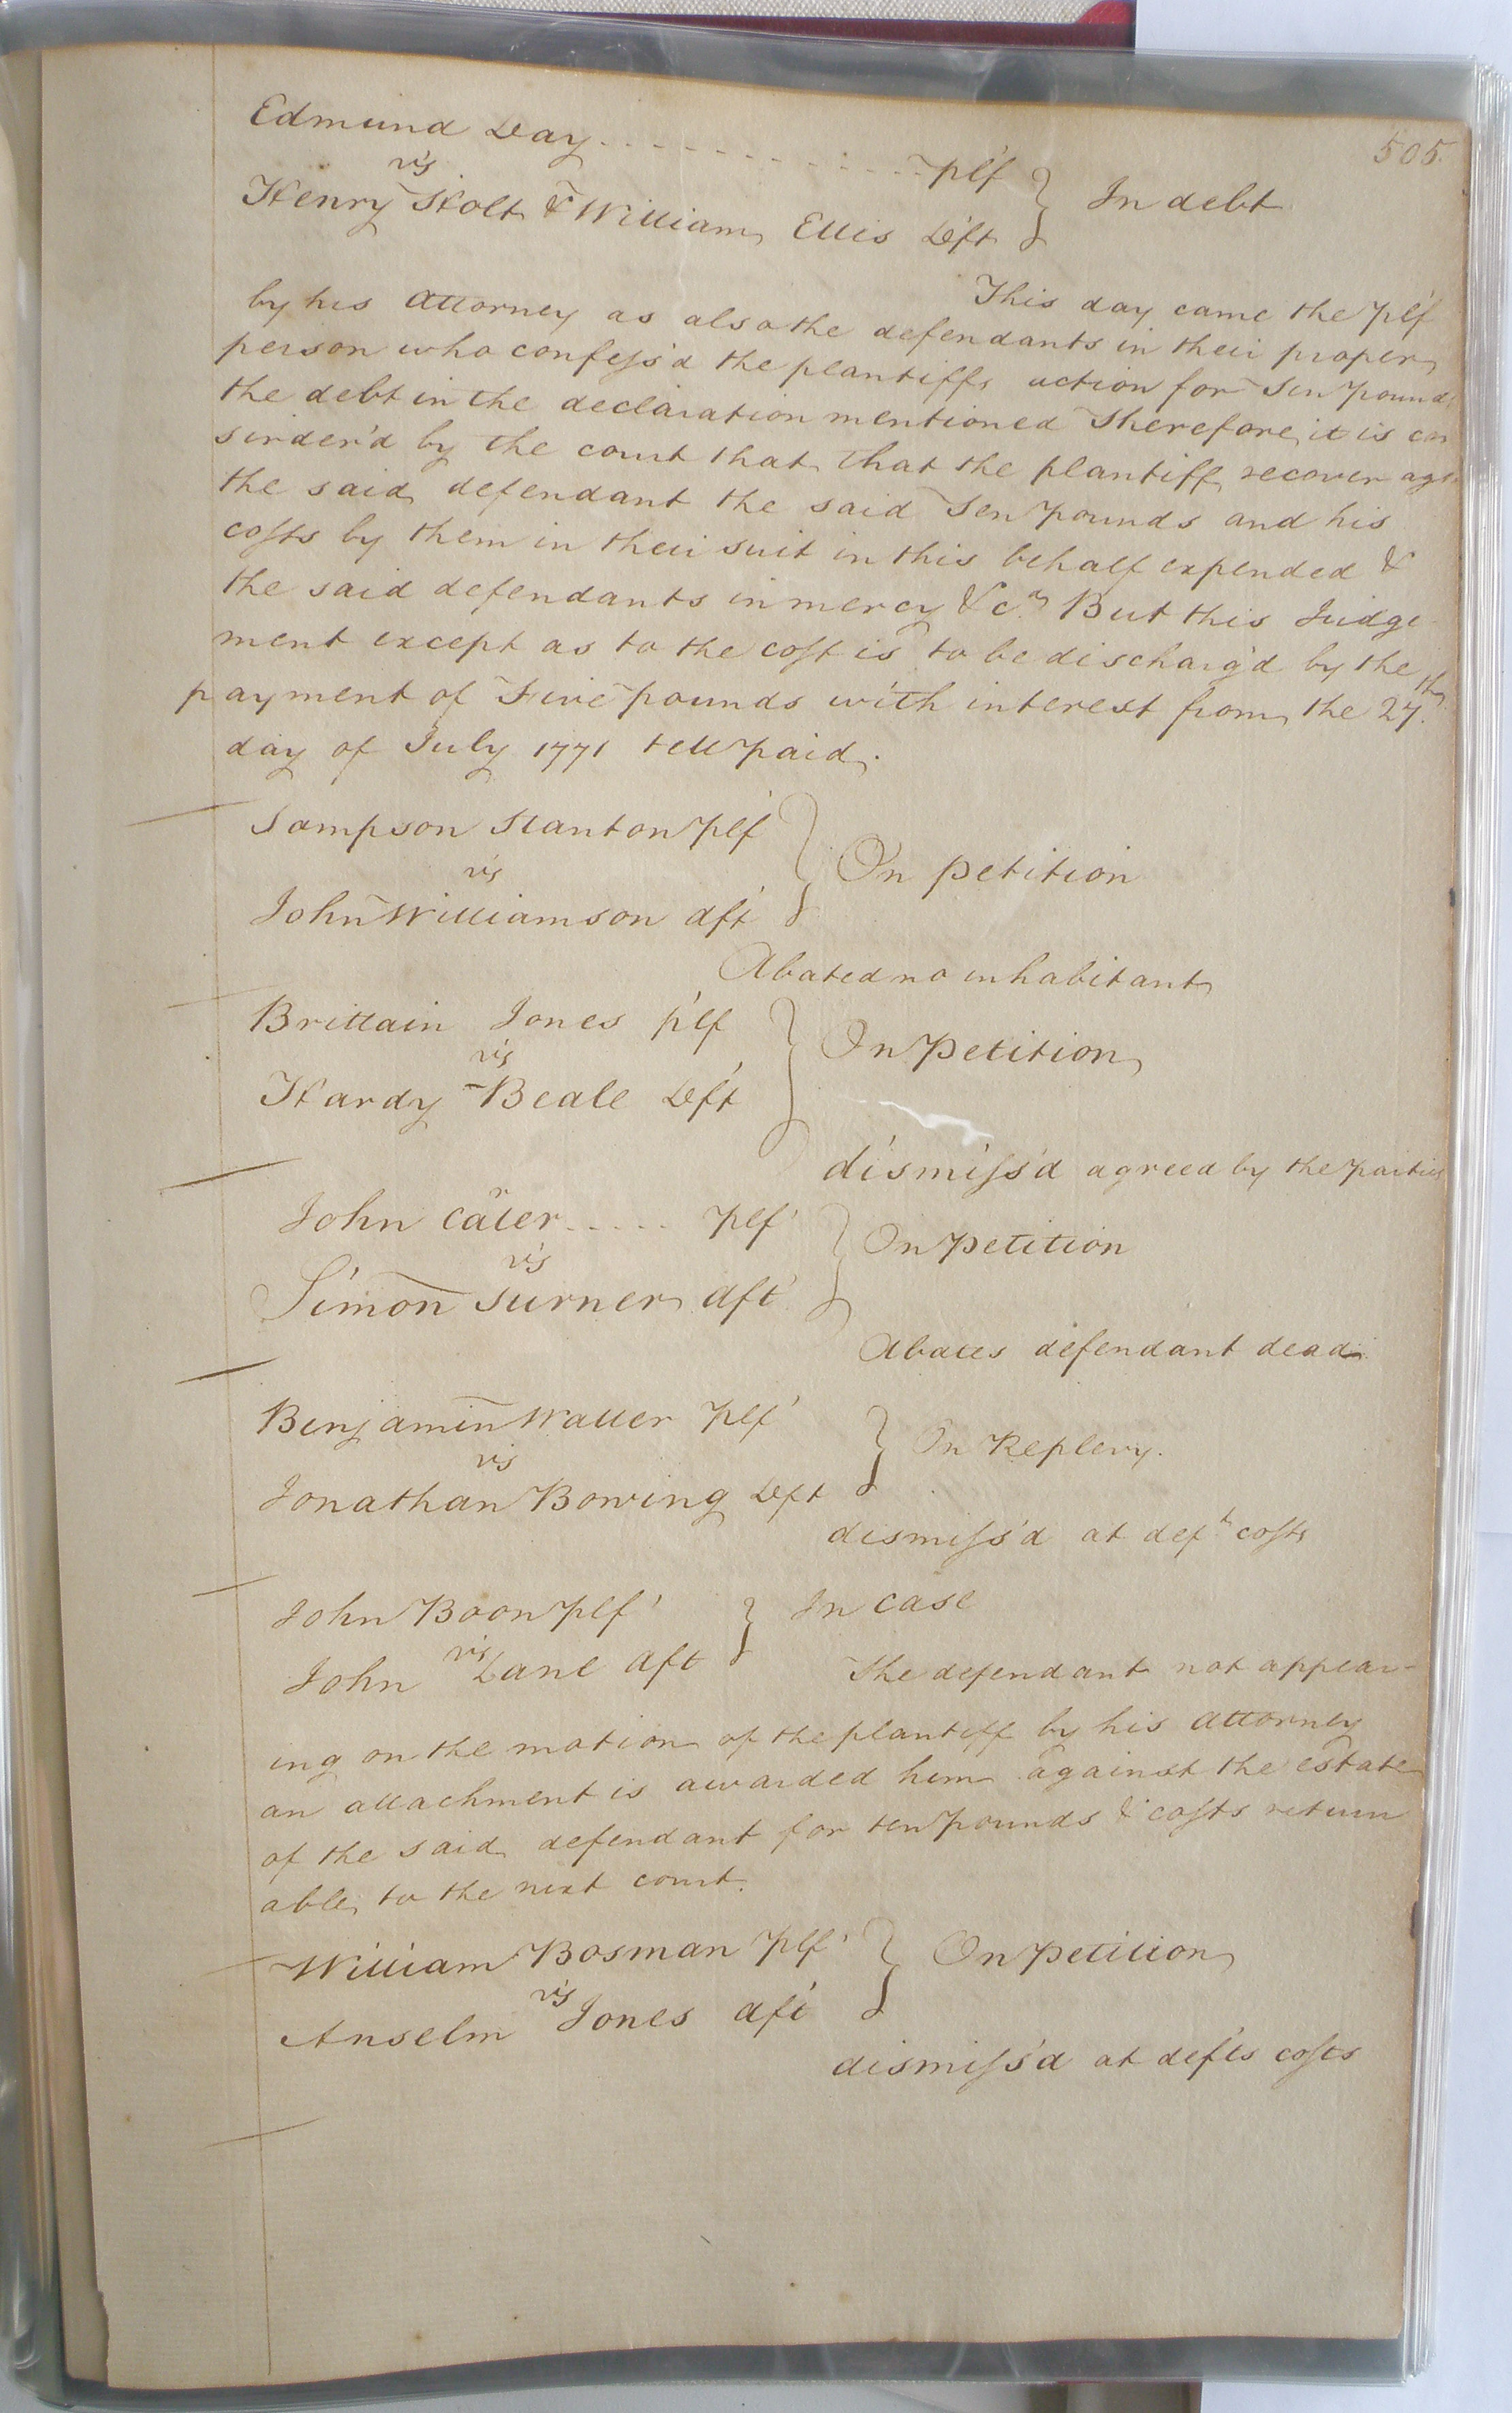 505.
Edmund Day - - - - - - - - - - - plf } In debt
vs
Henry Holt & William Ellis Deft
This day came the plf
by his attorney as also the defendants in their proper
person who confess'd the plantiffs action for Ten pounds
the debt in the declaration mentioned Therefore it is con
sirder'd by the court that that the plantiff recover agt
the said defendant the said Ten pounds and his
costs by them in their suit in this behalf expended &
the said defendants in mercy &c. But this Judge
ment except as to the cost is to be discharg'd by the
payment of Five pounds with interest from the 27th
day of July 1771 till paid.
Sampson Stanton plf } On petition
vs
John Williamson dft
Abated no inhabitant
Brittain Jones plf } On Petition
vs
Hardy Beale Deft
dismiss'd agreed by the parties
John Cater - - - - - plf } On Petition
vs
Simon Turner dft
Abates defendant dead
Benjamin Waller plf } On Replevy.
vs
Jonathan Bowing Deft
dismiss'd at deft costs
John Boon plf } In case
vs
John Lane dft
The defendant not appear-
ing on the motion of the plantiff by his attorney
an attachment is awarded him against the estate
of the said defendant for ten pounds & costs return
able to the next court.
William Bosman plf } On Petition
vs
Anselm Jones dft
dismiss'd at defts costs